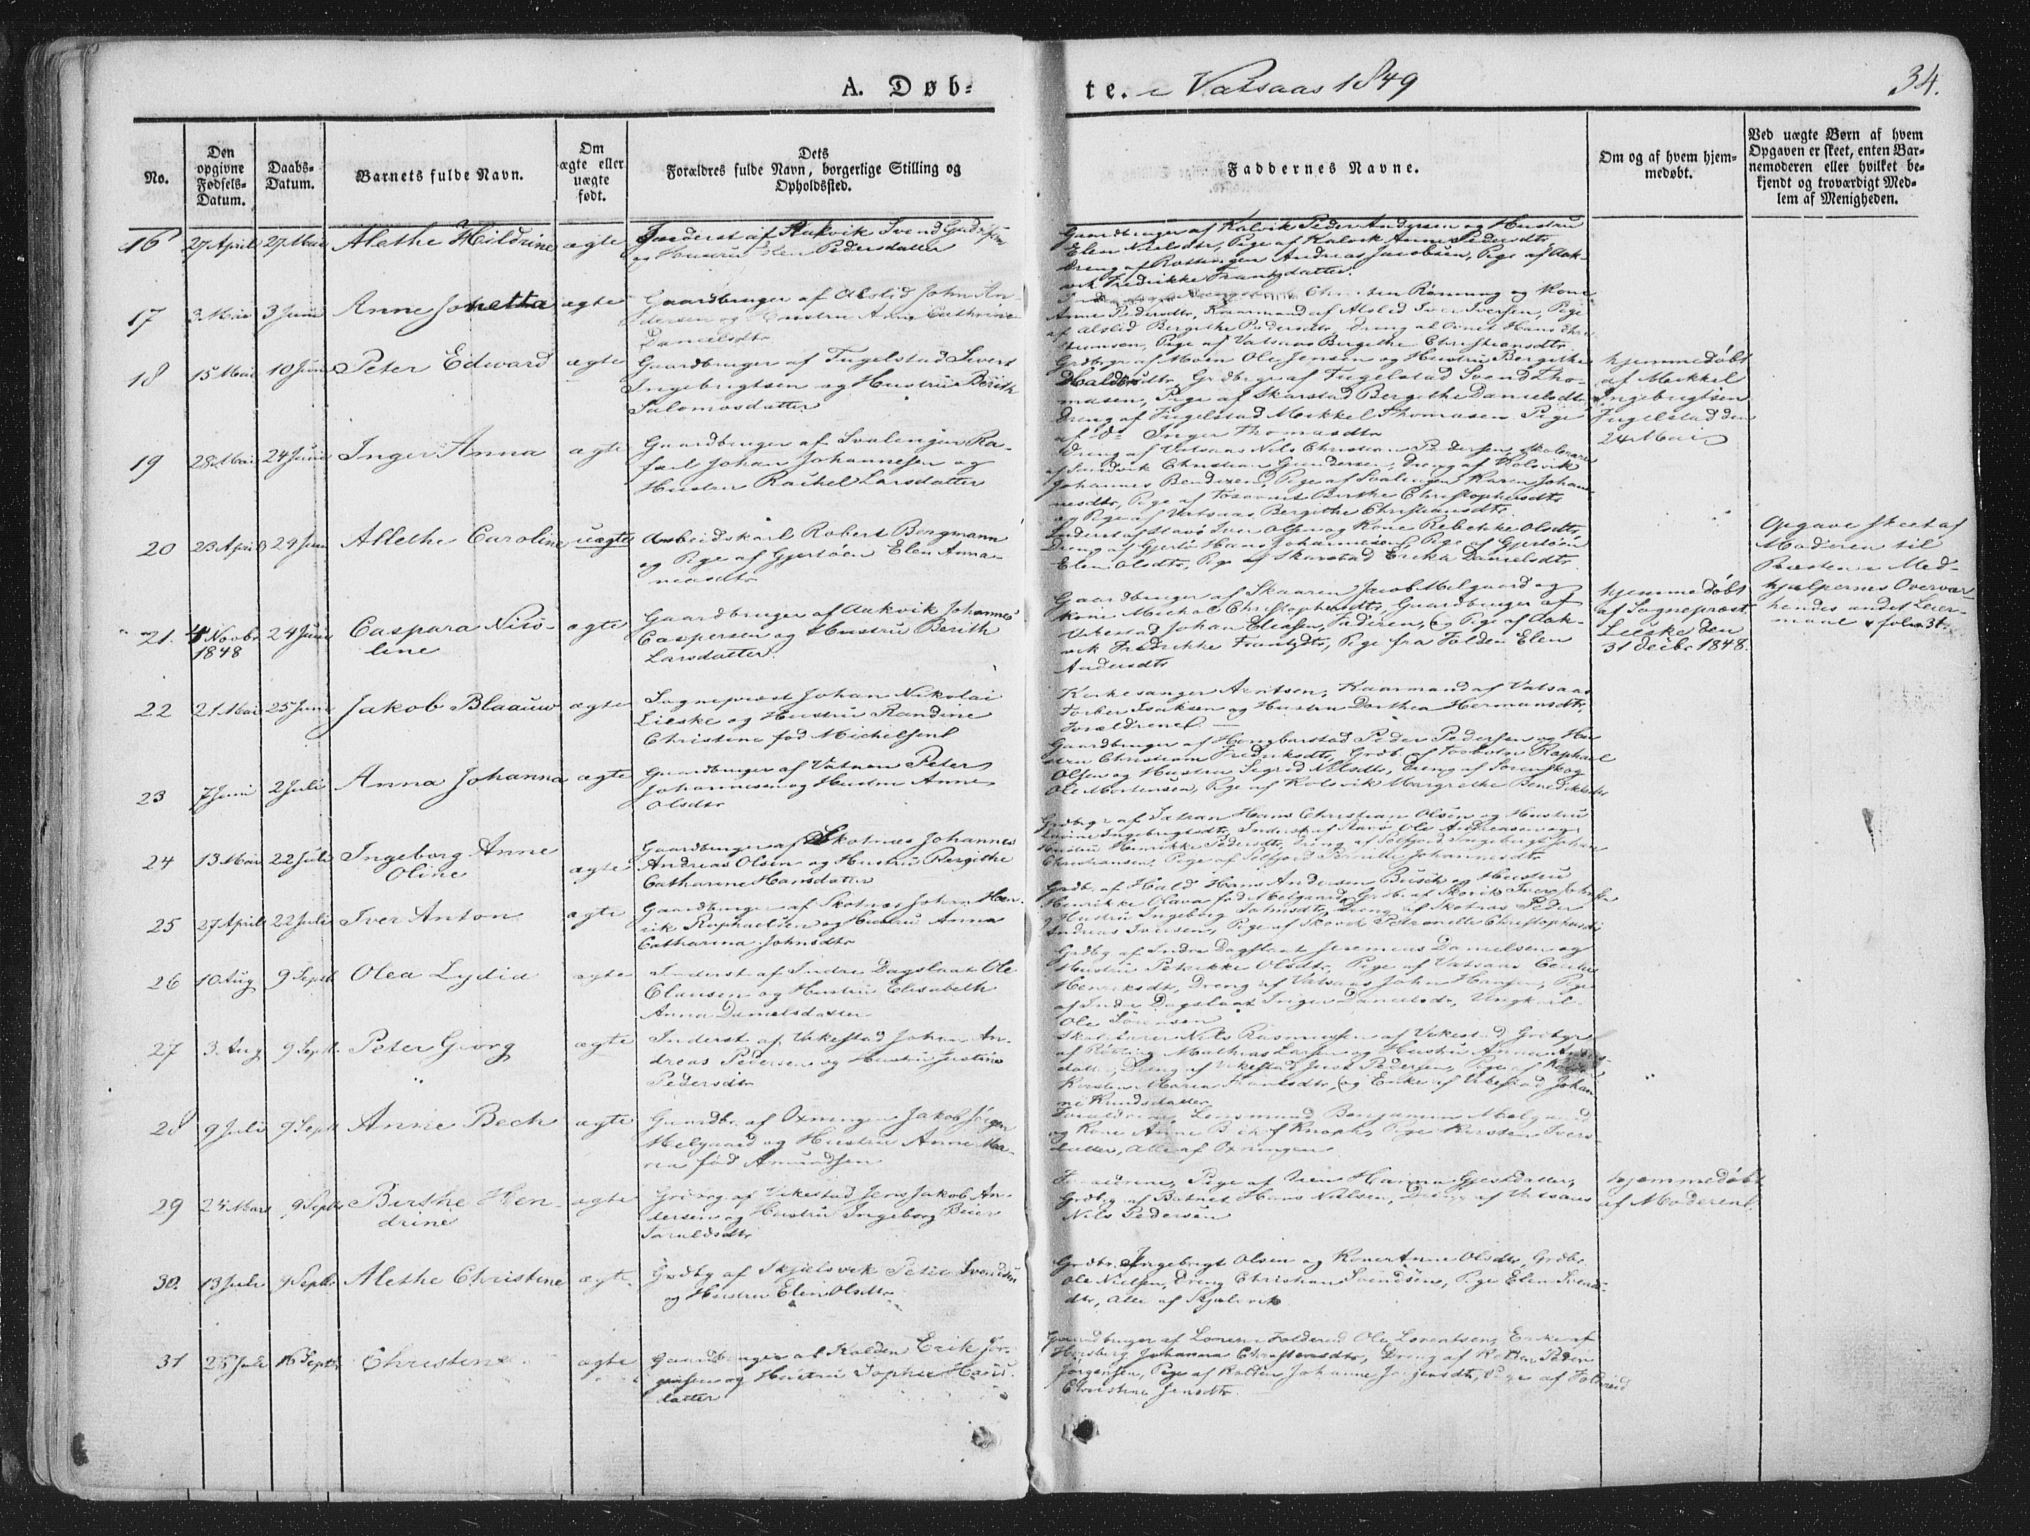 A. Døb-
te. i Vatsaas 1849
34.
No.
Den opgivne Fødsels-Datum.
Daabs-Datum.
Barnets fulde Navn.
Om ægte eller uægte født.
Dets Forældres fulde Navn, borgerlige Stilling og Opholdssted.
Faddernes Navne.
Om og af hvem hjem-
medøbt.
Ved uægte Børn af hvem
Opgaven er skeet, enten Bar-
nemoderen eller hvilket be-
kjendt og troværdigt Med-
lem af Menigheden.
16 27 April 27 Mai Alethe Hildrine ægte Inderst af Aakvik Svend
og Hustru Elen Pedersdatter
Gaardbruger af Kalvik Peder Andersen og Hustru
Elen Nielsdtr, Pige af Kalvik Anne Pedersdtr
Dreng af Rottingen Andreas Jacobsen, Pige af Aak-
vik Fredrikke Frantzdatter.
17 3 Mai 3 Juni Anne Johetta ægte Gaardbruger af Alslid John An-
dersen og Hustru Anne Cathrine
Danielsdtr
Rønning og Kone
Anne Pedersdtr, Kaarmand af Alslid Iver Iversen, Pige
af Alslid Bergithe Pedersdtr, Dreng
Pige af Vatsaas Bergithe Christiansdtr
18 15 Mai 10 Juni Peter Edward ægte Gaardbruger af Fugelstad Sivert
Ingebrigtsen og Hustru Berith
Salomosdatter
Grdbrgr af Moen Ole Jensen og Hustru Bergithe
Haldorsdtr, Grdbrgr af Fugelstad Svend Tho-
masen, Pige af Skarstad Bergithe Danielsdtr
Dreng af Fugelstad Mekkel Thomasen Pige
af do Inger Thomasdtr
hjemmedøbt
af Mekkel
Ingebrigtsen
Fugelstad den
24 Mai
19 28 Mai 24 Juni Inger Anna ægte Gaardbruger af Svalengen Ra-
fael Johan Johannesen og
Hustru Rachel Larsdatter
Dreng af Vatsaas Nils Christian Pedersen, Skolelærer
af Sandvik Christian Gundersen, Dreng af Kolsvik
Johannes Bendixen, Pige af Svalengen Karen Johan-
nesdtr, Pige af Berthe Christophersdtr
og Pige af Vatsaas Bergithe Christiansdtr
20 23 April 24 Juni Allethe Caroline uægte Arbeidskarl Robert Borgmann
og Pige af Gjertøen Elen Anna
Inderst af Stavø Iver Olsen og Kone Rebekke Olsdtr
Dreng af Gjertø Hans Johannesen, Pige af Gjertøen
Elen Olsdtr, Pige af Skarstad Ericka Danielsdtr
Opgave skeet af
Moderen til
Præsten i Med-
hjelpernes Overvær
hendes andet Leier-
maal
21. 4 Novbr 1848 24 Juni Caspara Nico-
line ægte Gaardbruger af Aakvik Johannes
Caspersen og Hustru Berith
Larsdatter.
Gaardbruger af Skaaren Jacob Melgaard og
Kone Michal Christophersdtr, Gaardbruger af
Vikestad Johan Eliasen, Faderen, og Pige af Aak-
vik Fredrikke Frantzdtr, Pige fra Folden Elen
Andersdtr
hjemmedøbt
af Sogneprest
Lieske den
31 Decbr 1848.
22 21 Mai 25 Juni Jakob Blaauw ægte Sogneprest Johan Nikolai
Lieske og Hustru Randine
Christine fød Michelsen
Kirkesanger Arntsen, Kaarmand af Vatsaas
Torber Isaksen og Hustru Dorthea Hermansdtr,
Forældrene
23 7 Juni 2 Juli Anna Johanna ægte Gaardbruger af Vatnen Peter
Johannesen og Hustru Anne
Olsdtr
Gaardbruger af Peder Pedersen og Hu-
stru Christiane Fredriksdtr, Grdb. af Raphael
Olsen og Hustru Sigrid Nilsdtr, Dreng af
Ole Mortensen, Pige af Kolsvik Margrethe Benedikte
24 13 Mai 22 Juli Ingeborg Anne
Oline ægte Gaardbruger af Skotnes Johannes
Andreas Olsen og Hustru Bergithe
Catharine Hansdatter
Grdbrgr af Hans Christian Olsen og Hustru
Ingebrigtsdtr, Inderst af Ole Andreasen og
Hustru Henrikke Pedersdtr, Dreng af Ingebrigt Johan
Christiansen, Pige af Pernille Johannesdtr
25 27 April 22 Juli Iver Anton ægte Gaardbruger af Skotnes Johan Hen-
rik Raphaelsen og Hustru Anna
Catharina Johnsdtr
Grdbr. af Hald Hans Andersen Busch og Hustru
Henrikke Olava fød Melgaard, Grdb. af Skovik Iver
og Hustru Ingeborg Johnsdtr, Dreng af Skotnes Peder
Andreas Iversen, Pige af Skovik Petronille Christophersdtr
26 10 Aug 9 Septbr Olea Lydia ægte Inderst af Indre Dagslaat Ole
Clausen og Hustru Elisabeth
Anna Danielsdatter
Grdbg af Indre Dagslaat Jeremias Danielsen og
Hustru Petrikke Olsdtr, Pige af Vatsaas
Henriksdtr, Dreng af Vatsaas John Hansen, Pige
af Indre Dagslaat Inger Danielsdtr, Ungkarl
Ole Sørensen
27 3. Aug 9 Septbr. Peter Georg ægte Inderst af Vikestad Johan An-
dreas Pedersen og Hustru Justine
Pedersdtr
Skolelærer Nils Rasmussen af Vikestad, Grdbrgr
af Rotting Mathias Larsen og Hustru Anna
datter, Dreng af Vikestad Jens Pedersen, Pige af
Kirsten Maren Hansdtr, og Enke af Vikestad Johan-
ne Knudsdatter
28 9 Juli 9 Septbr Anne Bech ægte Gaardbr. af Oxningen Jakob Jørgen
Melgaard og Hustru Anne Ma-
ria fød Amundsen
Forældrene, Lensmand Benjamin Melgaard
og Kone Anne Bech f. Knoph, Pige Kirsten Ivers-
datter, Alle af Oxningen
29 24 Mars 9 Septbr Berthe Hen-
drine ægte Grdbrg. af Vikestad Jens Jakob An-
dersen og Hustru Ingeborg Beier
Taraldsdtr
Forældrene, Pige af Hanna Gjertsdatter,
Grdbrg af Batnet Hans Nilsen, Dreng af Vatsaas
Nils Pedersen
hjemmedøbt
af Moderen.
30. 13 Juli 9 Septbr. Alethe Christine ægte Grdbg af Skjelsvik Peter Svendsen
og Hustru Elen Olsdtr
Grdbr. Ingebrigt Olsen og Kone Anne Olsdtr, Grdbr.
Ole Nielsen, Dreng Christian Svendsen, Pige Elen Svends-
dtr, Alle af Skjelsvik.
31 25 Juli 16 Septbr Christine ægte Gaardbruger af Kolden Erik Jør-
gensen og Hustru Sophie
datter
Gaardbruger af Foldereid Ole Lorentsen, Enke af
Horsberg Johanna Christensdtr, Dreng af Kolten Peder
Jørgensen, Pige af Kolten Johanne Jørgensdtr, Pige af Foldereid
Christine Jensdtr.